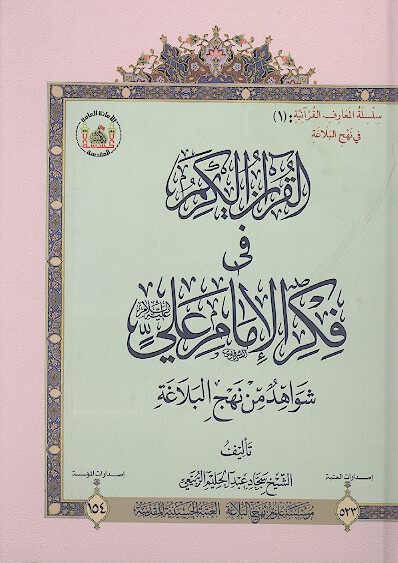 سِلْسِلَةُ المَعَارِفِ القُرْآنِيَّةِ: (١)
فِي نَهْجِ البَلَاغَةِ
الأمانة العامة
المقدسة
القُرْآنُ الكَرِيمُ
فِي
فِكْرِ الإِمَامِ عَلِيٍّ عليه السلام
شَوَاهِدُ مِنْ نَهْجِ البَلَاغَةِ
تَأليفُ
الشَّيْخ سَجَّاد عَبْد الحَلِيم الرُّبَيْعِي
إصدارات العتبة
٥٢٣
إصدارات المؤسسة
١٥٤
مؤسسة علوم نهج البلاغة العتبة الحسينية المقدسة